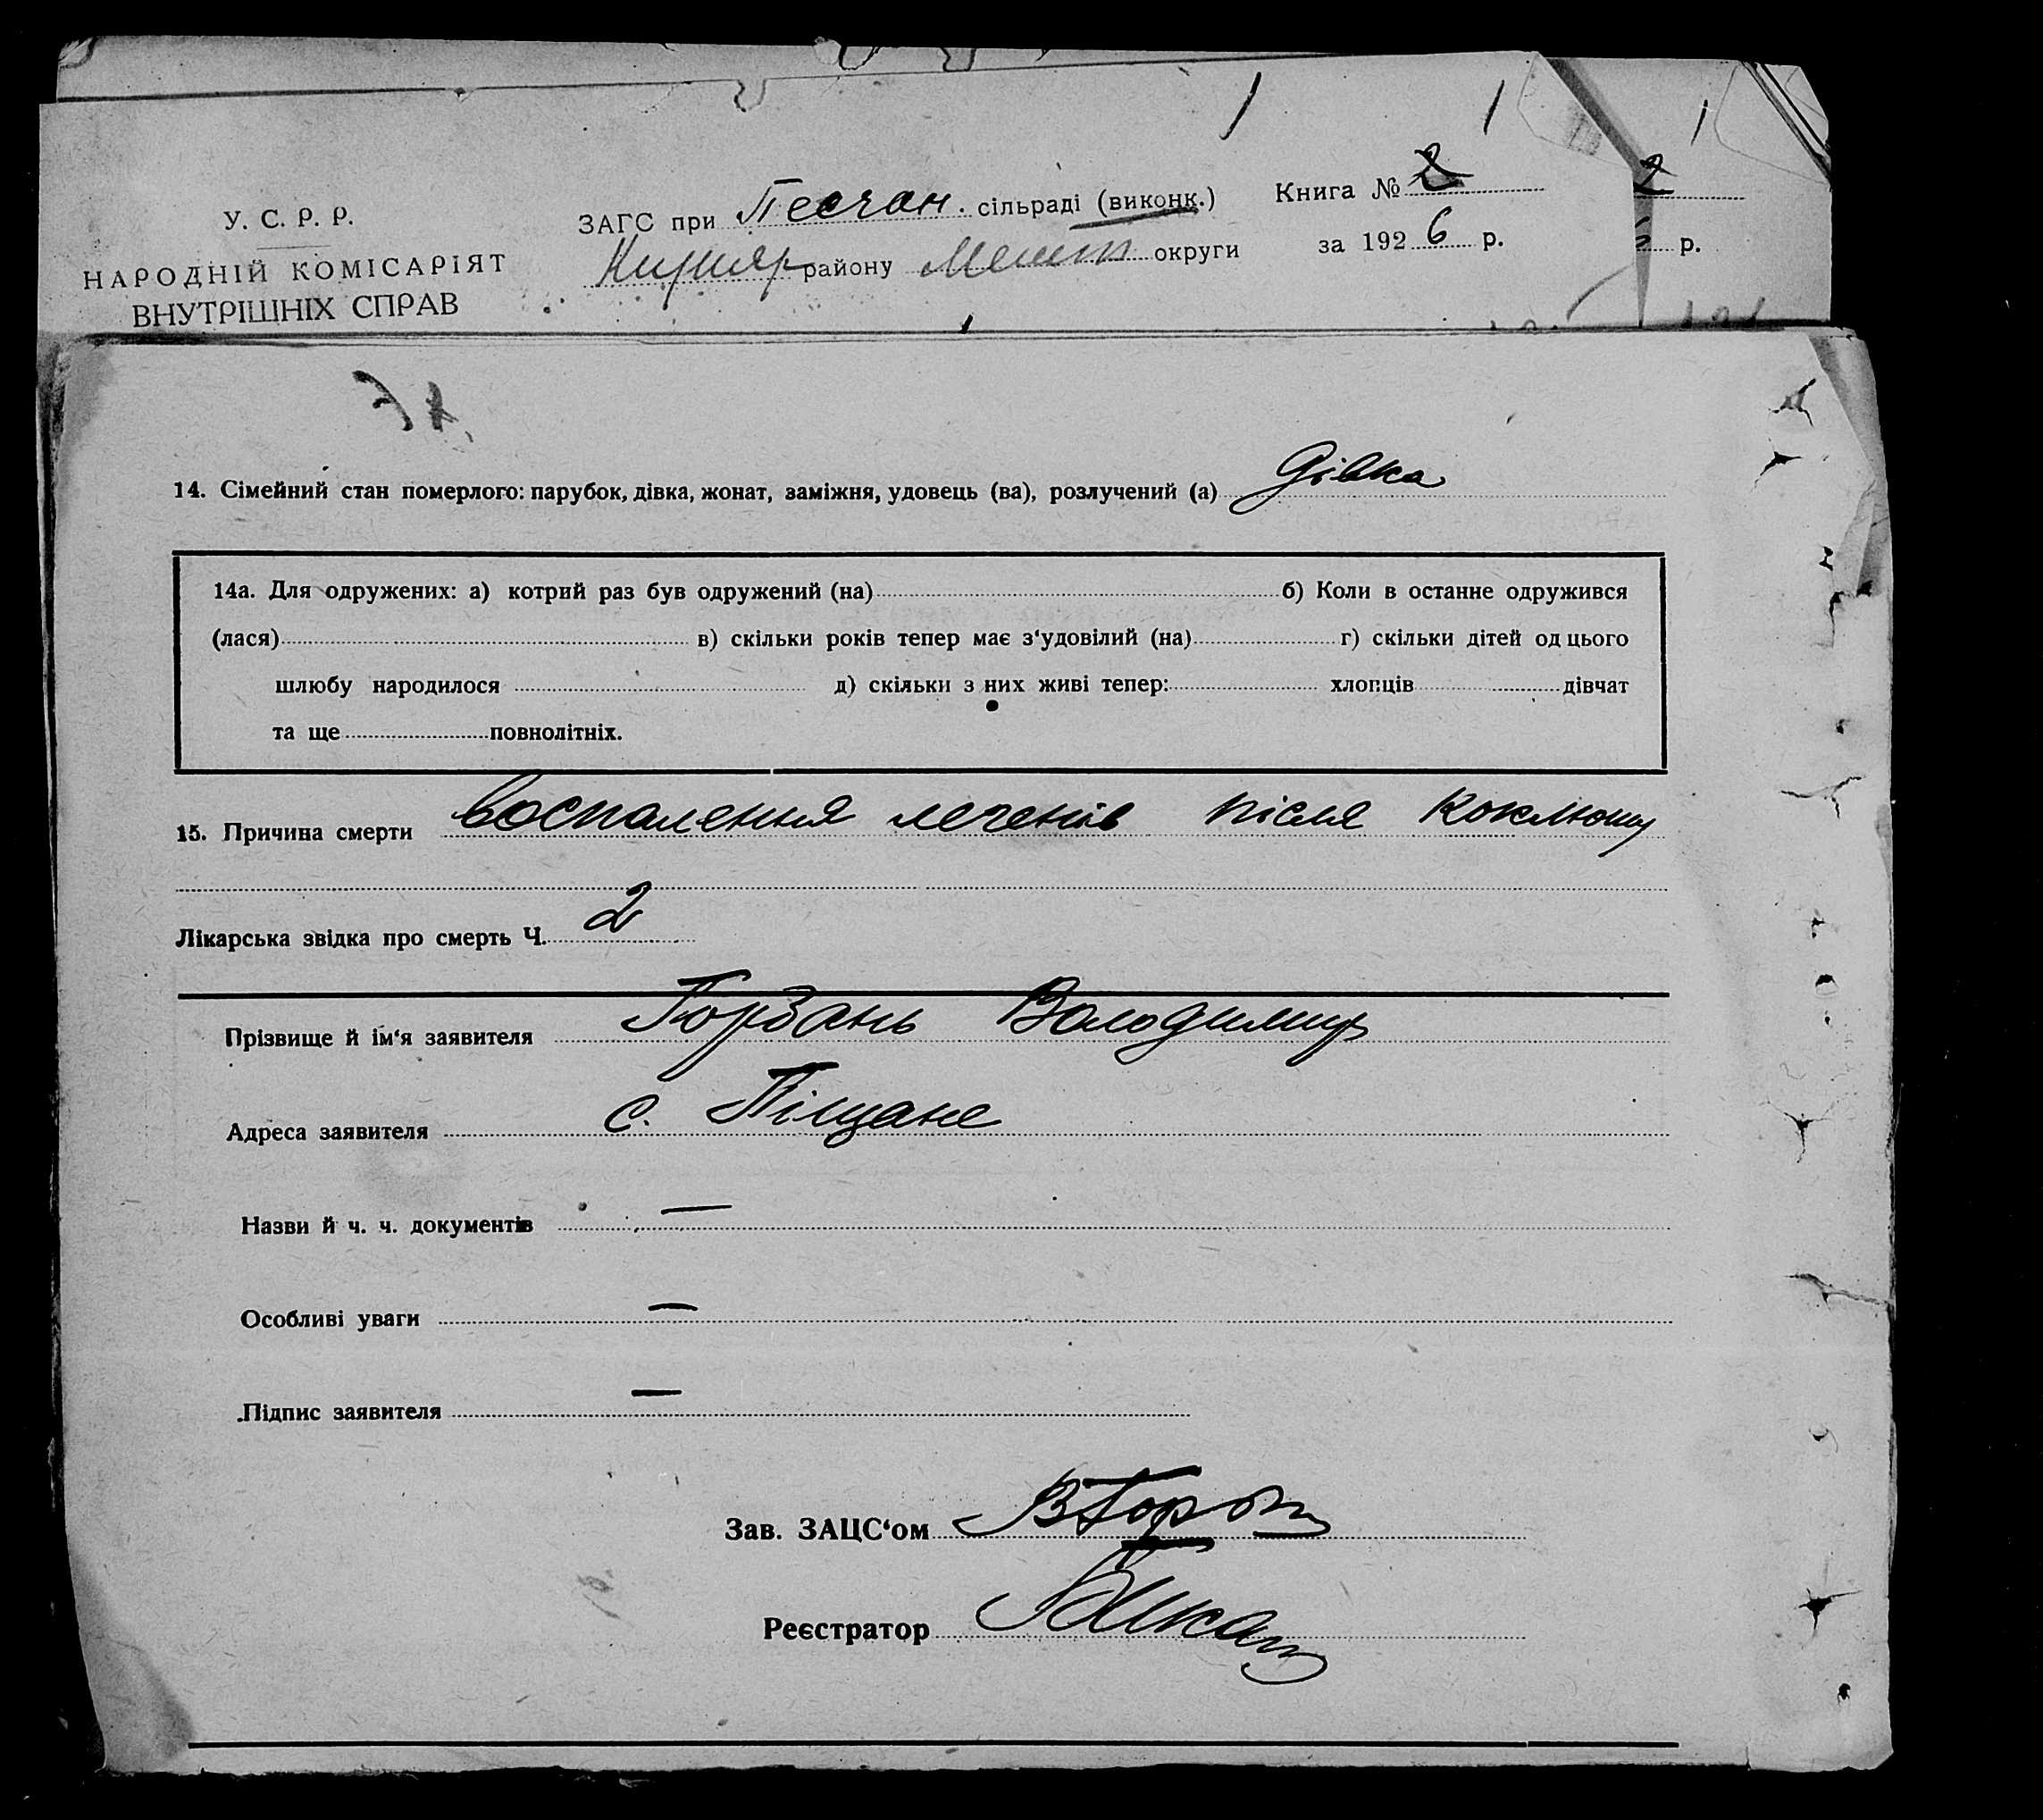 У. С. Р. Р.
НАРОДНІЙ КОМІСАРІЯТ
ВНУТРІШНІХ СПРАВ
ЗАГС при Песчан. сільраді (виконк.)
району округи
Книга № 2
за 1926 р.
2
р.
14. Сімейний стан померлого: парубок, дівка, жонат, заміжня, удовець (ва), розлучений (а) Дівка
14а. Для одружених: а) котрий раз був одружений (на) б) Коли в останне одружився
(лася) в) скільки років тепер має з‘удовілий (на) г) скільки дітей од цього
шлюбу народилося д) скільки з них живі тепер: хлопців дівчат
та ще повнолітніх.
15. Причина смерти воспалення легенів після коклюшу
Лікарська звідка про смерть Ч. 2
Прізвище й ім‘я заявителя Горбань Володимир
Адреса заявителя с. Піщане
Назви й ч. ч. документів —
Особливі уваги —
Підпис заявителя —
Зав. ЗАЦС‘ом
Реєстратор